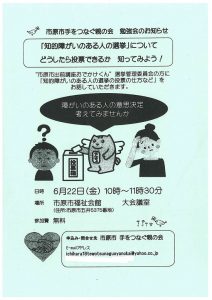 市原市手をつなぐ親の会 勉強会のお知らせ
「知的障がいのある人の選挙」について
どうしたら投票できるか 知ってみよう!
"市原市出前講座おでかけくん" 選挙管理委員会の方に
「知的障がいのある人の選挙の投票の仕方など」を
お話していただきます。
障がいのある人の意思決定
考えてみませんか
日時 6月22日(金) 10時~11時30分
場所 市原市福祉会館 大会議室
(住所:市原市五井5375番地)
参加費 無料
申込み・問合せ先 市原市 手をつなぐ親の会
E-mailアドレス